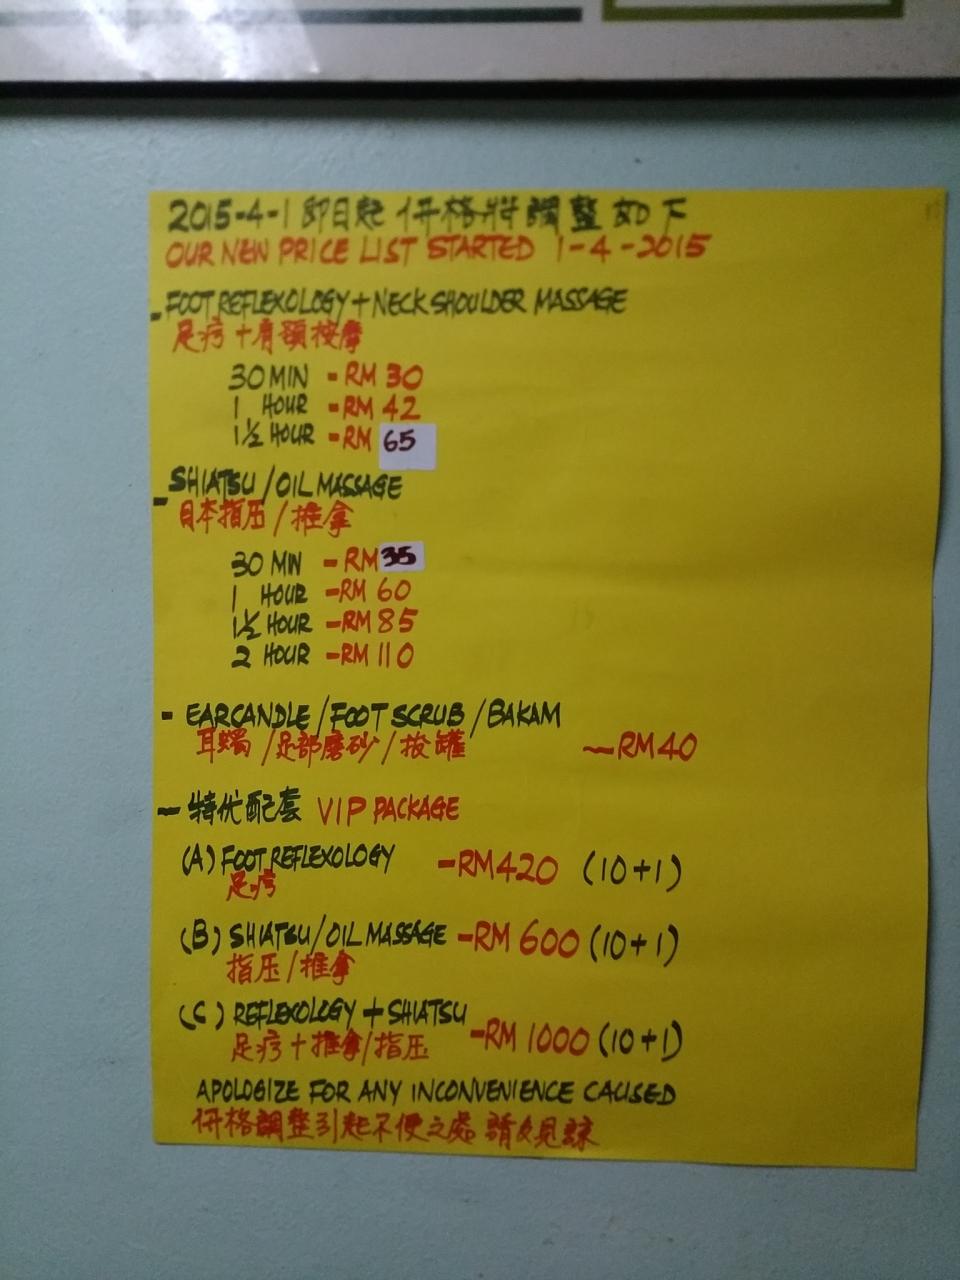 2015-4-1 即日起 价格将調整如下
OUR NEW PRICE LIST STARTED 1-4-2015
- FOOT REFLEXOLOGY + NECK SHOULDER MASSAGE
足疗+肩頸按摩
30 MIN - RM 30
1 HOUR - RM 42
1½ HOUR - RM 65
- SHIATSU / OIL MASSAGE
日本指压 / 推拿
30 MIN - RM 35
1 HOUR - RM 60
1½ HOUR - RM 85
2 HOUR - RM 110
- EARCANDLE / FOOT SCRUB / BAKAM
耳燭 / 足部磨砂 / 拔罐 - RM 40
- 特优配套 VIP PACKAGE
(A) FOOT REFLEXOLOGY - RM 420 (10+1)
足疗
(B) SHIATSU / OIL MASSAGE - RM 600 (10+1)
指压 / 推拿
(C) REFLEXOLOGY + SHIATSU - RM 1000 (10+1)
足疗+推拿/指压
APOLOGIZE FOR ANY INCONVENIENCE CAUSED
价格調整引起不便之處 請多見諒